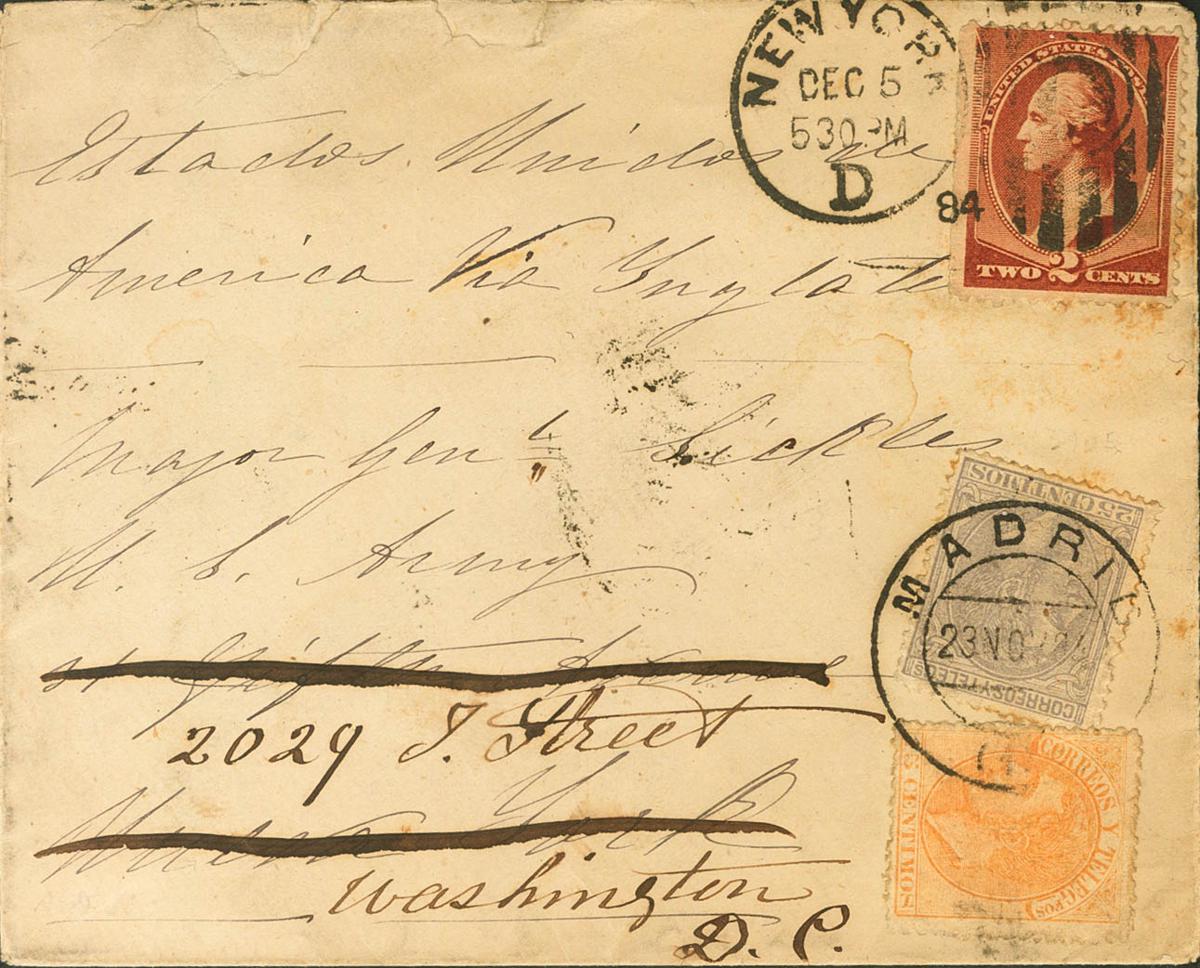 NEW YORK
DEC 5
530 PM
D
84
UNITED STATES POST
TWO 2 CENTS
Estados Unidos de
America Via Ynglate
Major Genl Sickles
U. S. Army
Fifth Avenue
2029 I. Street
Nueva York
Washington
D. C.
25 CENTIMOS
CORREOS Y TELEG
MADRID
23 NOV 84
CORREOS Y TELEGFOS
CENTIMOS